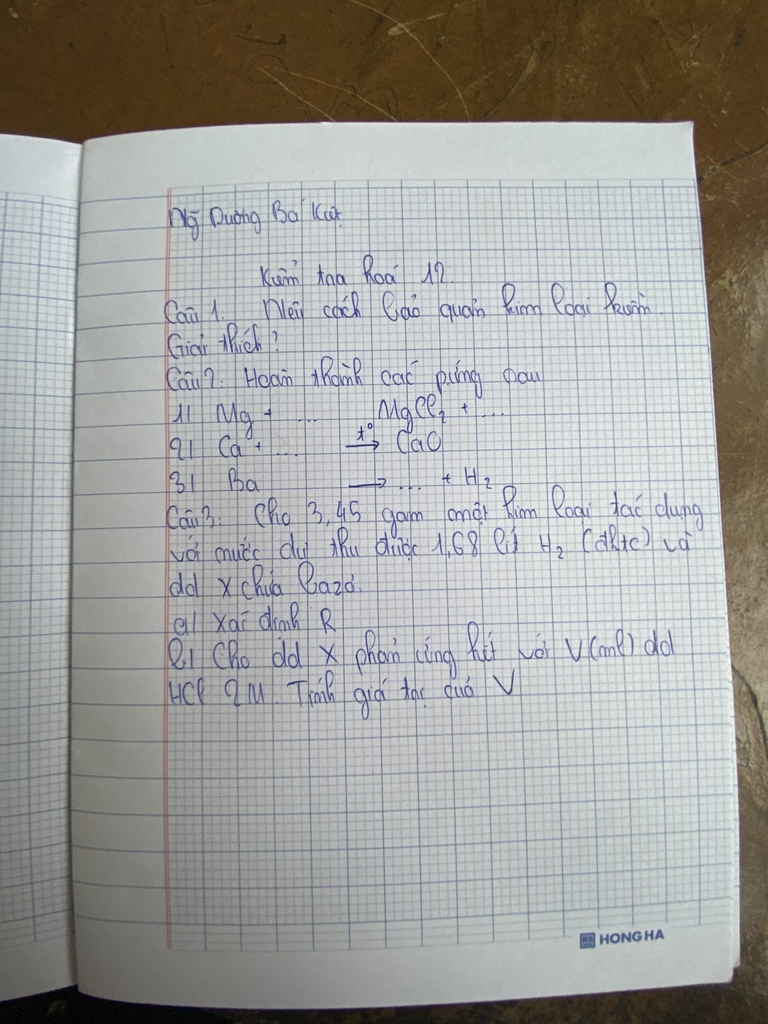 Ng Dương Bá Kiệt
Kiểm tra hoá 12
Câu 1. Nêu cách bảo quản kim loại kiềm.
Giải thích?
Câu 2. Hoàn thành các pứng sau
1) Mg + ... MgCl2 + ...
2) Ca + ... t° → CaO
3) Ba → ... + H2
Câu 3. Cho 3,45 gam một kim loại tác dụng
với nước dư thu được 1,68 lít H2 (đktc) và
dd X chứa bazơ.
a) Xác định R
b) Cho dd X phản ứng hết với V(ml) dd
HCl 2M. Tính giá trị của V
HONG HA